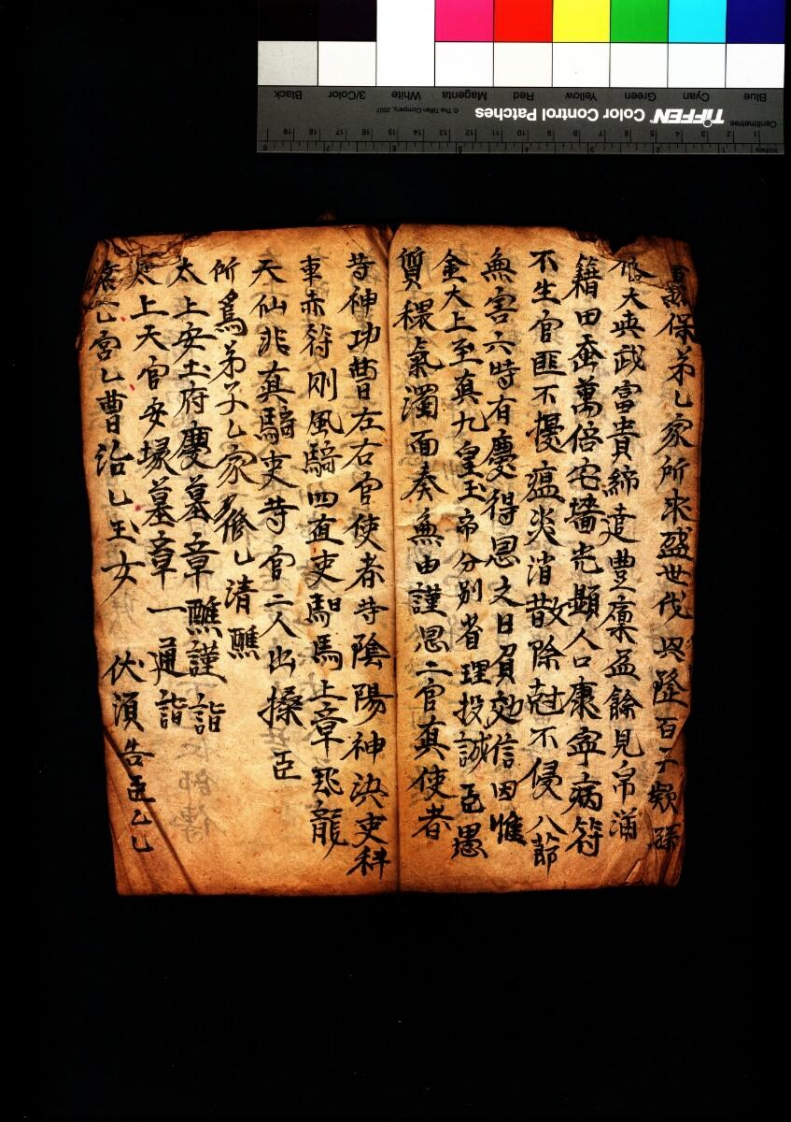 保弟乚家所求盛世代興隆百子
大典武富貴綿遠豊廩益餘見帛滿
籍田蚕萬倍宅墻光顯人口康寜病符
不生官匪不擾瘟炎消散除尅不侵八節
無害六時有慶得恩之日負効信因惟
金大上至真九皇玉帝分別省理投誠臣愚
質穢氣濁面奏無由謹恩二官真使者
䓁神功曹左右官使者䓁隂陽神決吏科
車赤符剛風騎四直吏馹馬上章飛龍
天仙兆真騎吏䓁官二人出操臣
所為弟子乚家修乚清醮
太上安土府慶墓章醮謹詣
上天官安墳墓章一通詣
宮乚曹治乚玉女 伏湏告臣乚乚
TIFFEN Color Control Patches
© The Tiffen Company, 2007
Blue Cyan Green Yellow Red Magenta White 3/Color Black
Centimetres
Inches